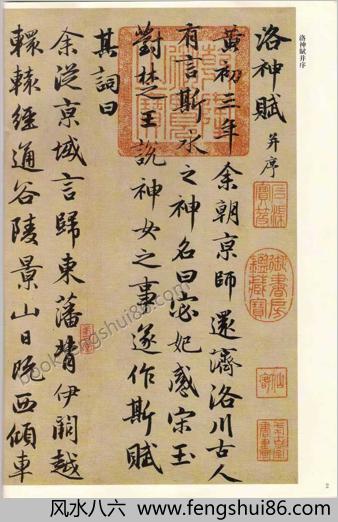 洛神賦并序
洛神賦 并序
黄初三年余朝京師還濟洛川古人
有言斯水之神名曰宓妃感宋玉
對楚王說神女之事遂作斯賦
其詞曰
余從京域言歸東藩背伊闕越
轘轅經通谷陵景山日既西傾車
御書房鑑藏寶
2
book.fengshui86.com
风水八六 www.fengshui86.com